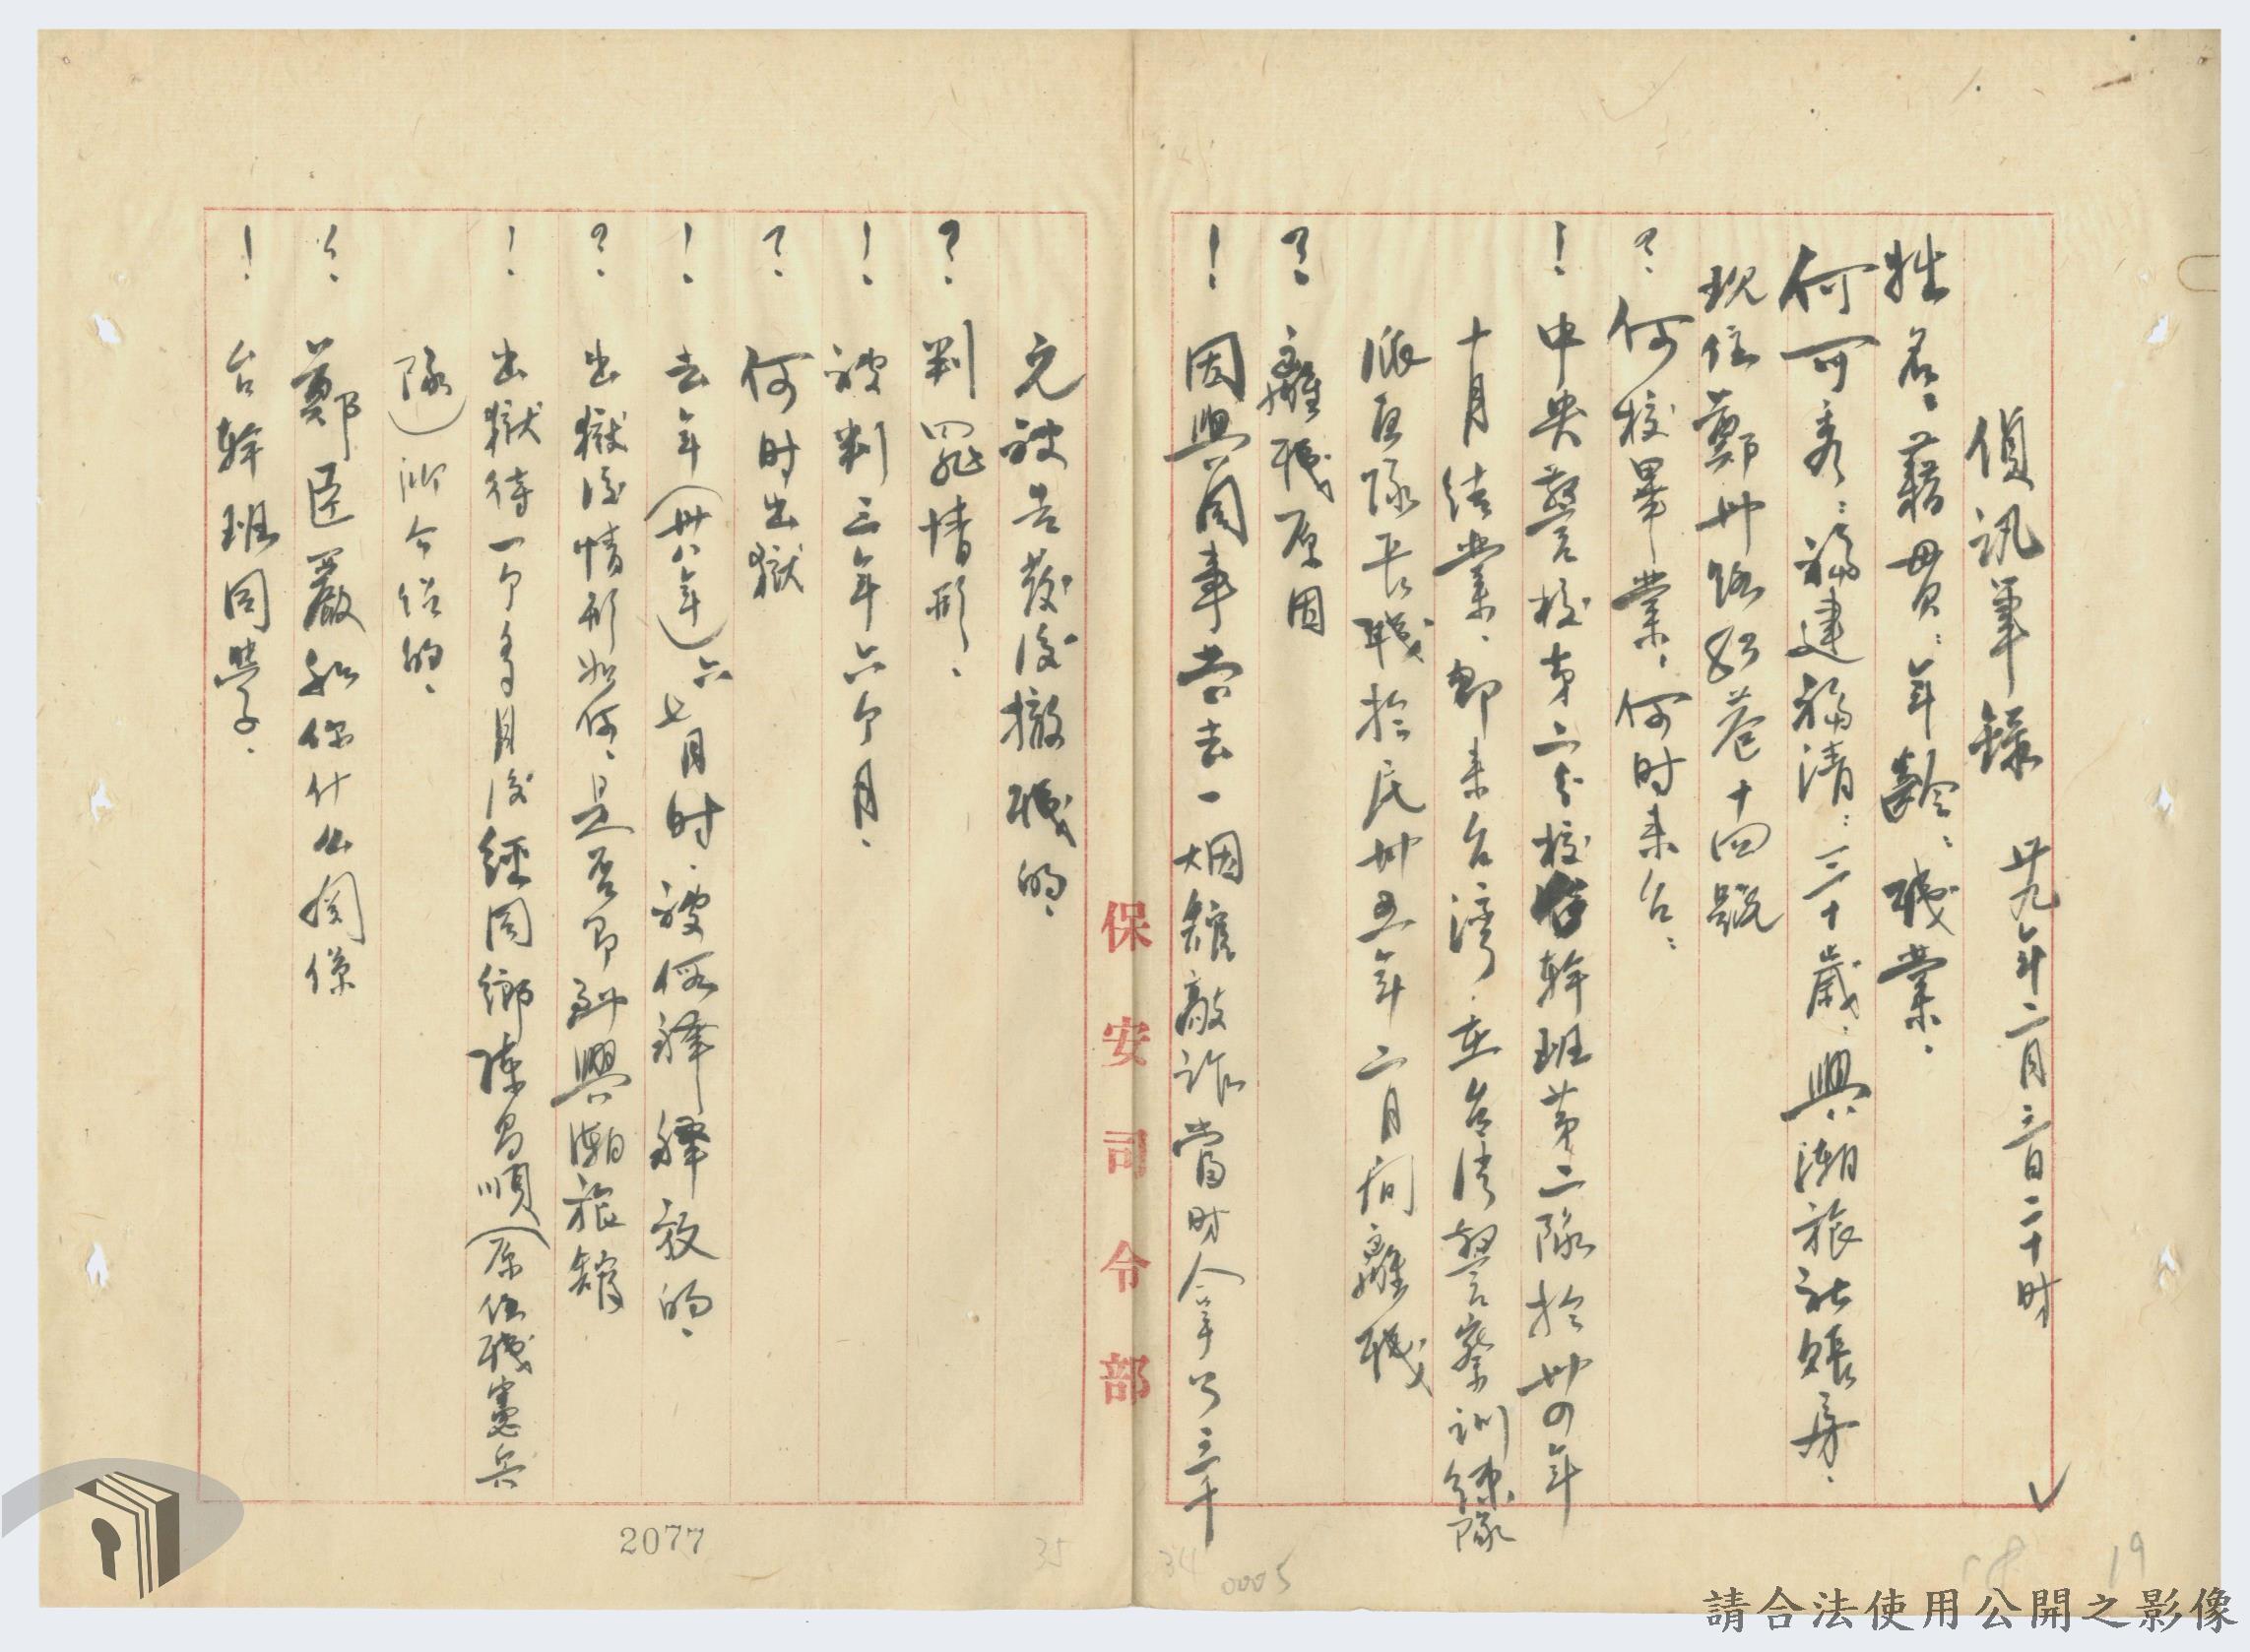 偵訊筆錄 卅九年二月三日二十时
姓名：籍貫：年齡：職業。
何可秀：福建福清：三十歲：興潮旅社賬房。
現住鄭州路 巷十四號
？何校畢業，何时来台：
！中央警校第二分校台幹班第二隊於卅四年
十月结業，即来台湾，在台湾警察训练隊
派區隊长職於民卅五年二月间離職
？離職原因
！因與同事嘗去一烟館敲詐當时拿了三千
元被告發後撤職的、
？判罪情形、
！被判三年六个月、
？何时出獄
！去年（卅八年）六七月时、被假釋釋放的、
？出獄後情形如何、是否即到興潮旅館
！出獄待一个多月後經同鄉陳昌順（原任職憲兵
隊）所介绍的、
？鄭臣嚴和你什么関係
！台幹班同學、
保安司令部
2077
35
34
0005
19
請合法使用公開之影像